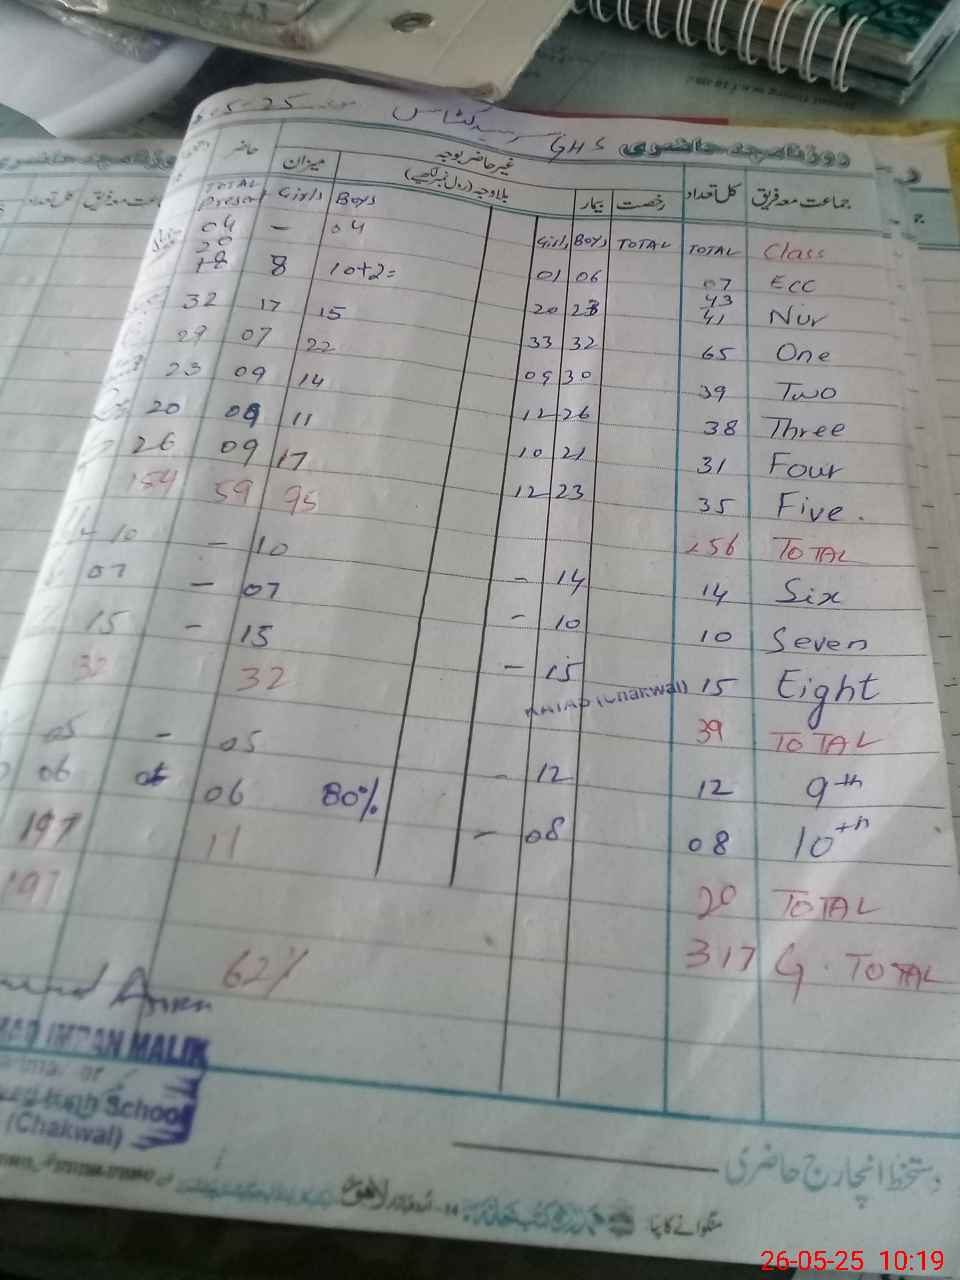 05-25
GHS
روزنامچہ حاضری
غیر حاضر بوجہ
جماعت معہ فریق کل تعداد رخصت بیمار بلا وجہ (رول نمبر لکھیے) میزان حاضر
Class TOTAL TOTAL Boys Girls Boys Girls TOTAL Present
ECC 07 06 01 04 - 04
Nur 43 41 23 20 10+2= 8 20
One 65 32 33 15 17 32
Two 39 30 09 22 07 29
Three 38 26 12 14 09 23
Four 31 21 10 11 09 20
Five. 35 23 12 17 09 26
TOTAL 256 95 59 154
Six 14 14 - 10 - 10
Seven 10 10 - 07 - 07
Eight 15 15 - 15 - 15
(Chakwal)
TOTAL 39 32 32
9th 12 12 - 05 - 05
10th 08 08 - 80% 06 06
TOTAL 20 11 197
G. TOTAL 317 197
62%
IMRAN MALIK
High School
(Chakwal)
دستخط انچارج حاضری
منگوانے کا پتا
لاہور
26-05-25 10:19